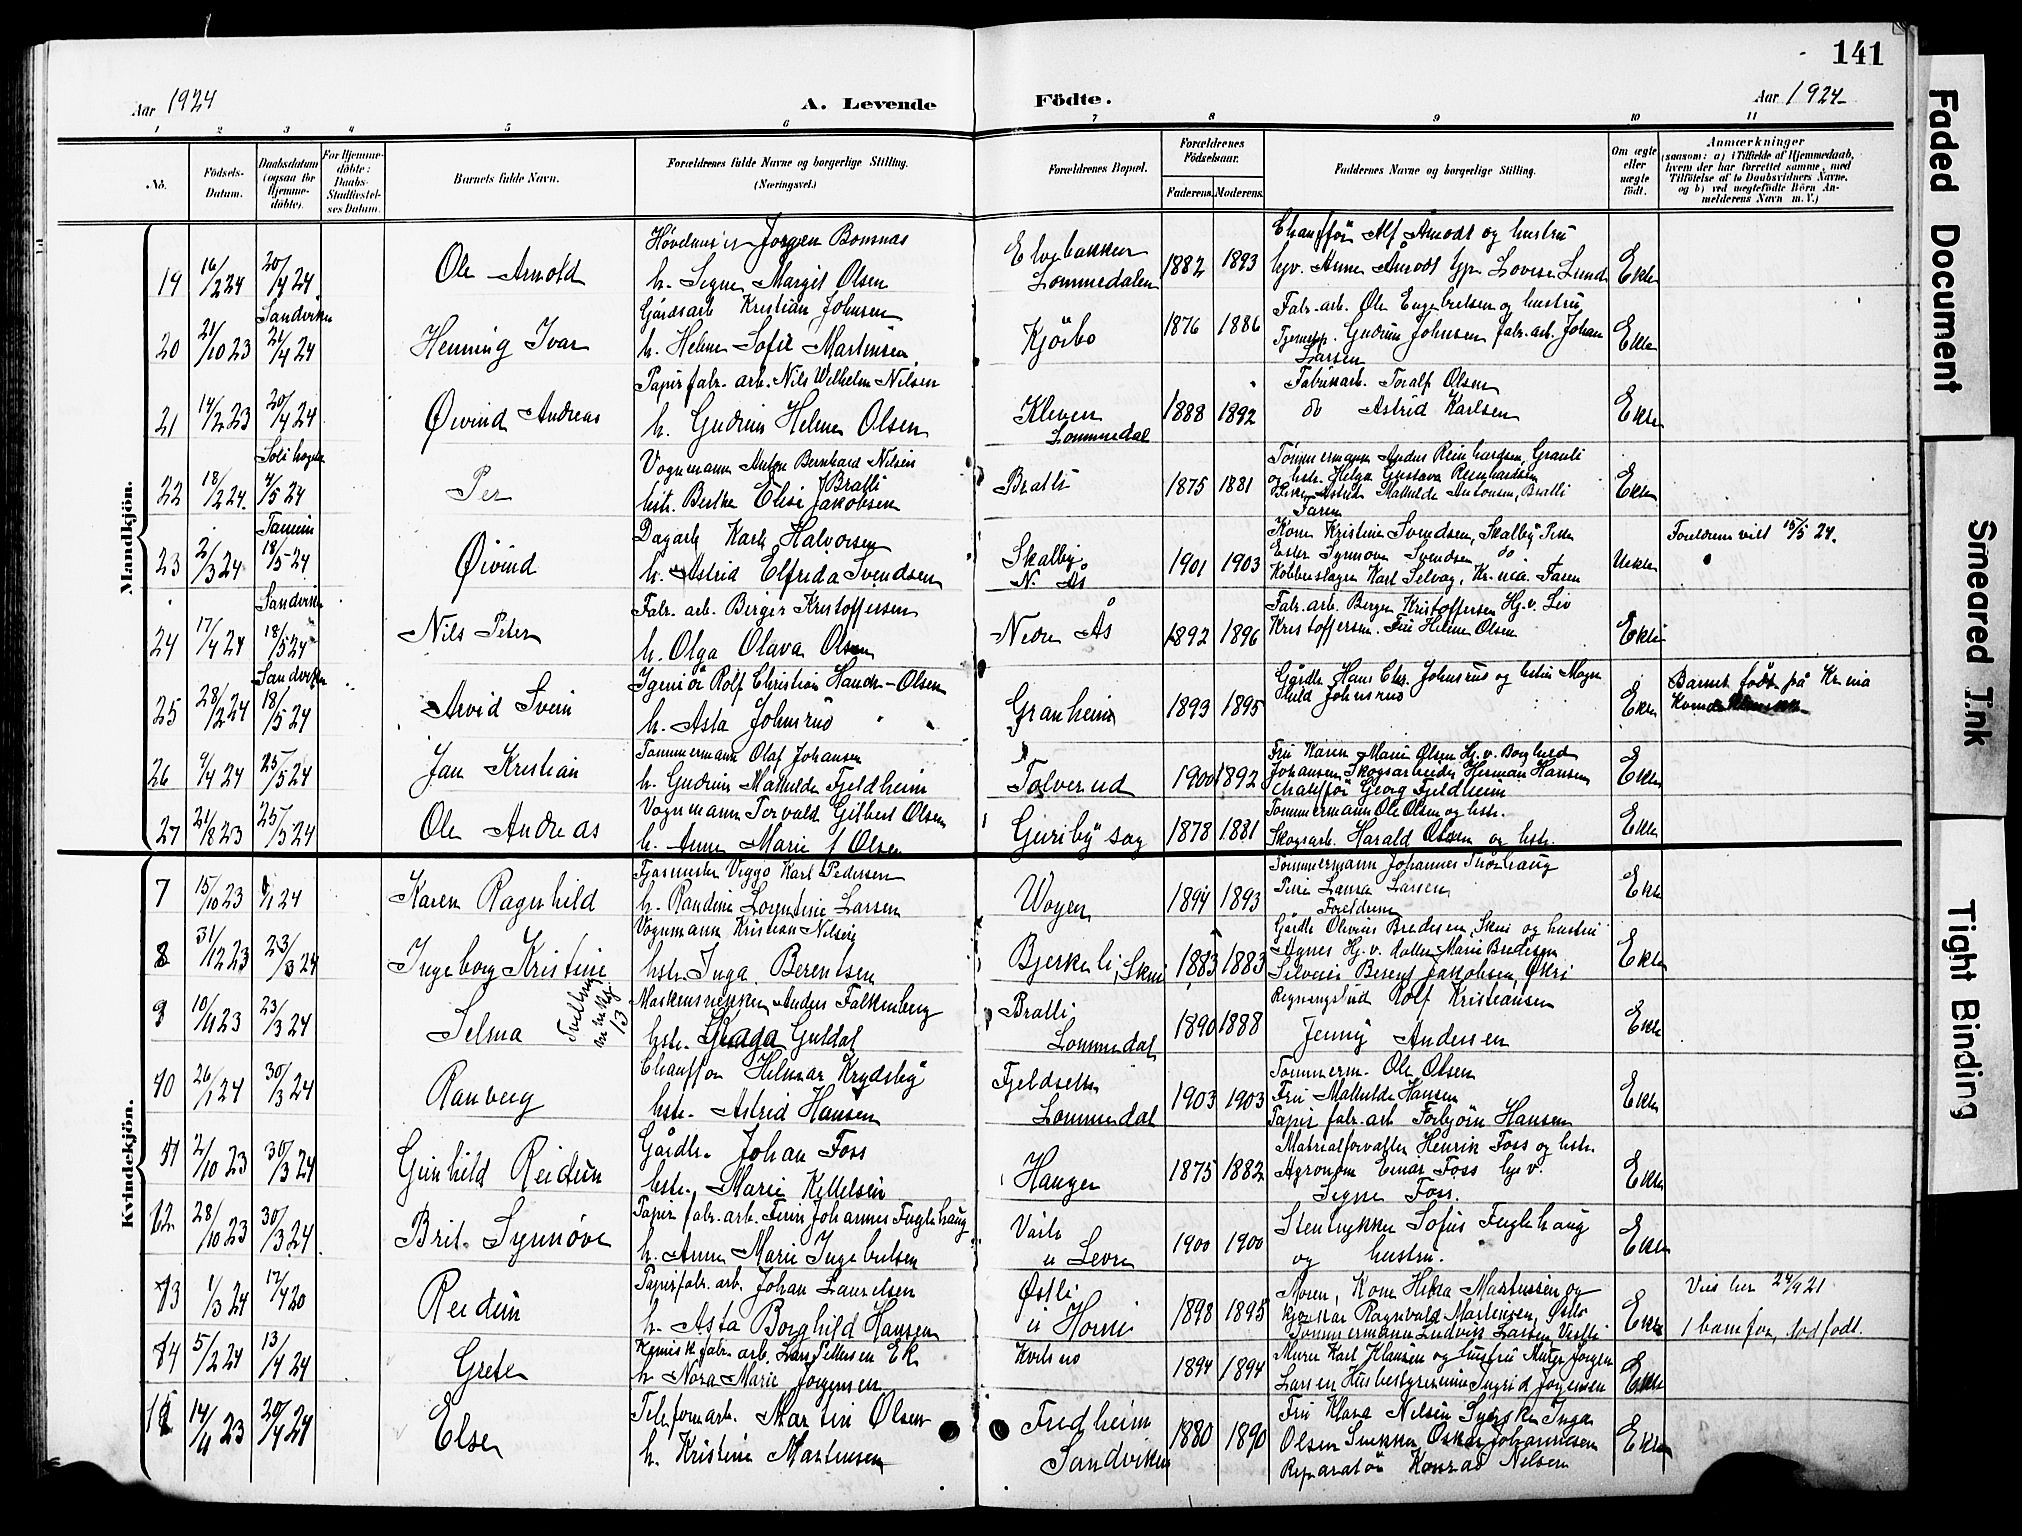 141
Aar 1924
A. Levende
Födte.
Aar 1924
1 2 3 4 5 6 7 8 9 10 11
No.
Födsels-Datum.
Daabsdatum (ogsaa for Hjemme-döbte).
For Hjemme-döbte: Daabs-Stadfæstel-ses Datum.
Barnets fulde Navn.
Forældrenes fulde Navne og borgerlige Stilling. (Næringsvei.)
Forældrenes Bopæl.
Forældrenes Födselsaar.
Faderens. Moderens.
Faddernes Navne og borgerlige Stilling.
Om ægte eller uægte födt.
Anmærkninger
(saasom: a) i Tilfælde af Hjemmedaab,
hvem der har forrettet samme, med
Tilföielse af to Daabsvidners Navne,
og b) ved uægtefödte Börn An-
melderens Navn m. V.)
Mandkjön.
19 16/2 24 20/4 24 Ole Arnold
Jørgen Bonsnas
h. Signe Margit Olsen
Elvebakken Lommedalen 1882 1893
Chauffør Alf Amodt og hustru
Anne Åmodt Lovise Lund
Ekte
Sandviken
20 21/10 23 21/4 24 Henning Ivar
Gårdsarb Kristian Johnsen
h. Helene Sofie Martinsen
Kjörbo 1876 1886
Fabr. arb. Ole Engebretsen og hustru
Gudrun Johnsen fabr. arb. Johan
Larsen
Ekte
21 14/2 23 20/4 24 Øivind Andreas
Papirfabr. arb. Nils Wilhelm Nilsen
h. Gudrun Helene Olsen
Kleven Lommedal 1888 1892
Fabrikarb. Toralf Olsen
do Astrid Karlsen
Ekte
22 18/2 24 4/5 24 Per
Vognmann Anton Bernhard Nilsen
Bratli
hstr. Elise Jakobsen
Bratli 1875 1881
Tömmermann Anders Reinhardsen, Grauli
og hstr. Helga Gustava Reinhardsen
Pike Astrid Mathilde Antonsen, Bratli
Faren
Ekte
Tanum
23 2/3 24 18/5 24 Øivind
Dagarb Karl Halvorsen
h. Astrid Elfrida Svendsen
Skalby N. Ås 1901 1903
Kone Kristine Svendsen, Skalby Pike
Ester Synnøve Svendsen do
Kobberslager Karl Selvag, Kr.nia. Faren
Uekte
Foreldrene viet 15/5 24.
Sandviken
24 17/4 24 18/5 24 Nils Peter
Fabr. arb. Birger Kristoffersen
h. Olga Olava Olsen
Nedre Ås 1892 1896
Fabr. arb. Berger Kristoffersen Hj.v. Liv
Kristoffersen. Fru Helene Olsen
Ekte
Sandviken
25 28/2 24 18/5 24 Arvid Svein
Igeniör Rolf Christian Olsen
h. Asta Johnsrud
Granheim 1893 1895
Gårdbr. Hans Chr. Johnsrud og hstru Magn
hild Johnsrud
Ekte
Barnet født på Kr.nia
26 9/4 24 25/5 24 Jan Kristian
Tommermann Olaf Johansen
h. Gudrun Mathilde Fjeldheim
Tolverud 1900 1892
Fru Karen Marie Olsen Hj.v. Borghild
Johansen Skogsarbeider Herman Hansen
Chauffør Georg Fjeldheim
Ekte
27 21/8 23 25/5 24 Ole Andreas
Vognmann Torvald Gilbert Olsen
h. Anne Marie f Olsen
Guriby sag 1878 1881
Tommermann Ole Olsen og hstr.
Skogsarb. Harald Olsen og hstr.
Ekte
Kvindekjön.
7 15/10 23 /1 24 Karen Ragnhild
Viggo Karl Pedersen
h. Randine Larsen
Woyen 1894 1893
Tommermann Johannes
Laura Larsen
Foreldrene
Ekte
8 31/12 23 23/3 24 Ingeborg Kristine
Vognmann Kristian Nilsen
hstr. Inga Berentsen
Bjerkeli, Skui 1883 1883
Gårdbr Olivius Bredesen, Skui og hustru
Agnes Hj.v. datter Marie Bredesen
Jakobsen, Økri
Ekte
9 10/11 23 23/3 24 Selma
Tvilling 13
Maskensnekker Anders Falkenberg
hstr. Guldal
Bratli Lommedal 1890 1888
Rolf Kristiansen
Jenny Andersen
Ekte
10 26/1 24 30/3 24 Ranveig
Chauffør Helmar Krydsby
hstr. Astrid Hansen
Lommedal 1903 1903
Tommerm. Ole Olsen
Fru Mathilde Hansen
Papir fabr. arb Torbjörn Hansen
Ekte
11 2/10 23 30/3 24 Gunhild Reidun
Gårdbr. Johan Foss
hstr. Marie Kettelsen
Hauger 1875 1882
Materialforvalter Henrik Foss og hstr
Agronom Einar Foss hj.v.
Signe Foss.
Ekte
12 28/10 23 30/3 24 Brit Synnøve
Papir fabr. arb. Finn Johannes Fuglehaug
h. Anne Marie Ingebretsen
u Levre 1900 1900
Sofus Fuglehaug
og hustru.
Ekte
13 1/3 24 17/4 20 Reidun
Papirfabr. arb. Johan Lauritsen
h. Asta Borghild Hansen
Østli u Horni 1898 1895
Moren, Kone Martinsen og
Ragnvald Martinsen, Østli
Tømmermann Ludvik Larsen, Vestli
Ekte
Vies her 24/9 21
1 barn før, dødfødt.
14 5/2 24 13/4 24 Grete
Kemisk fabr. arb. Lars Pettersen Ek
h Nora Marie Jørgensen
1894 1894
Murer Karl Klausen og hustru Murer Jørgen
Larsen Husbestyrerinne Ingrid Jørgensen
Ekte
15 14/11 23 20/4 24 Else
Telefonarb. Martin Olsen
h. Kristine Martinsen
Fredheim Sandviken 1880 1890
Fru Klara Nilsen Syerske Inga
Olsen Snekker Oskar Johannesen
Reparatör Konrad Nilsen
Ekte
Faded Document
Smeared I.nk
Tight Binding